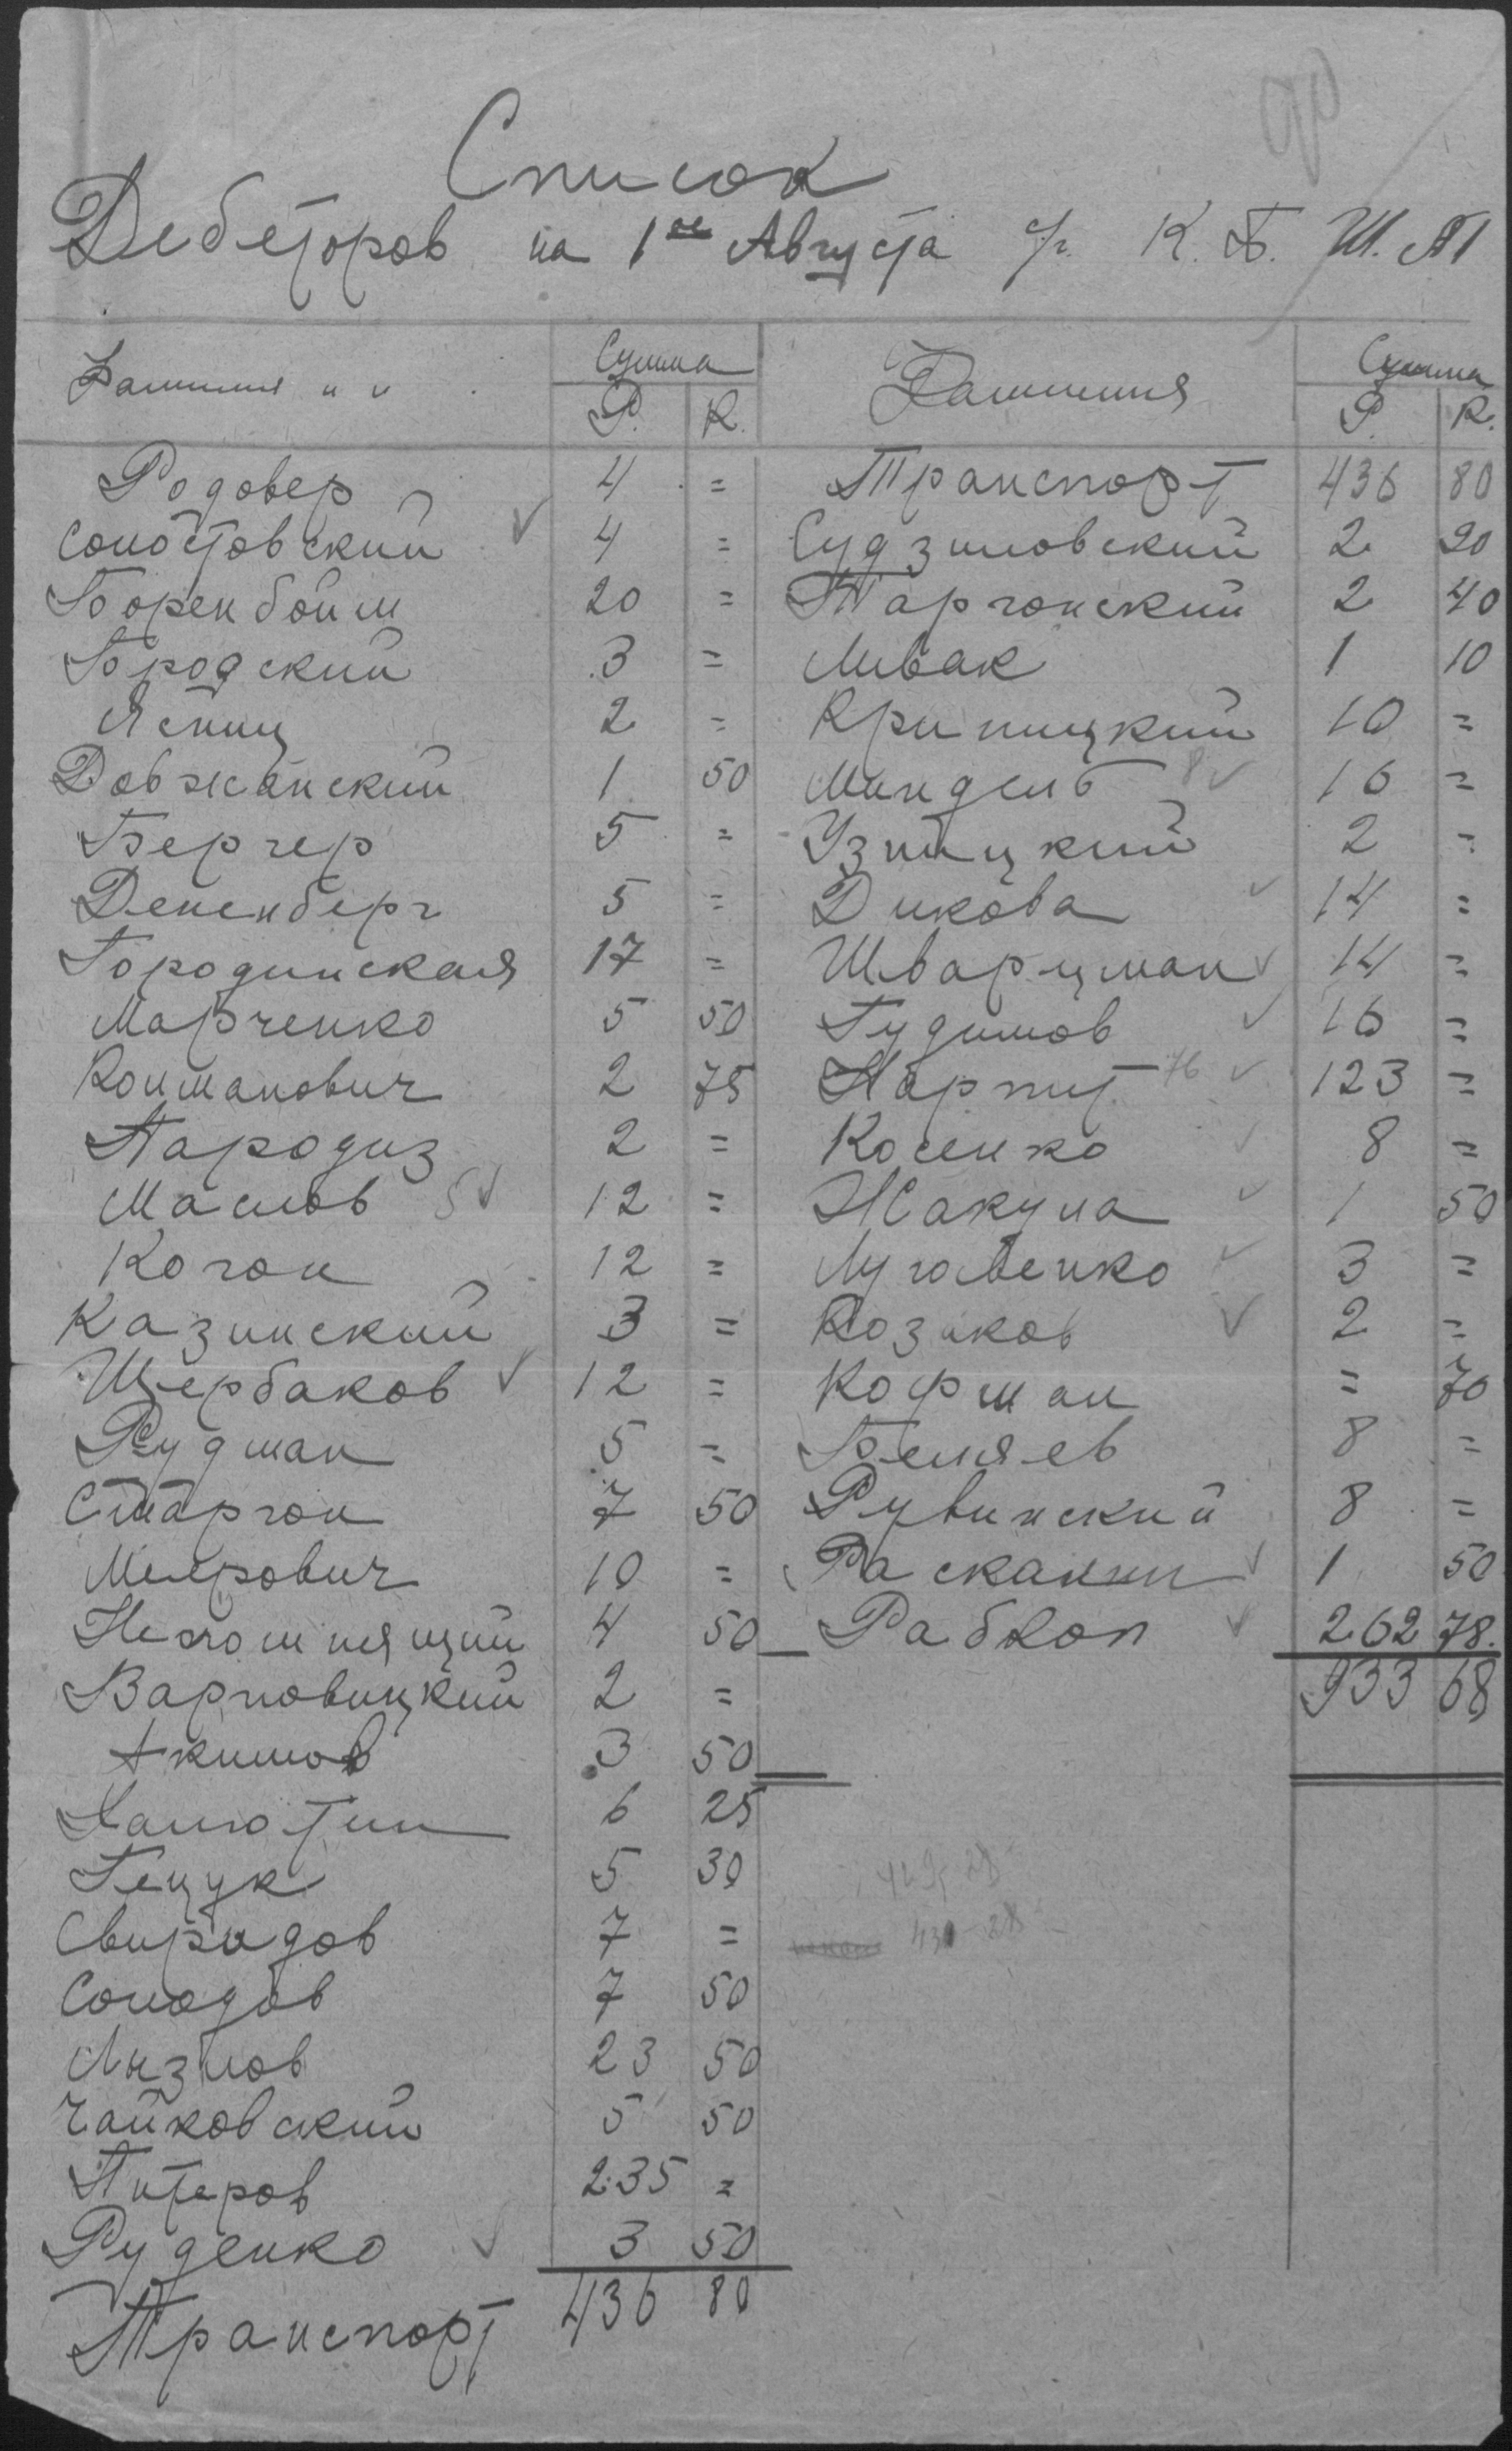 Список
Дебеторов на 1ое Августа с/г. К. Б. Ш. №1
Фамилия и и Сумма Р. К.
Родовер 4 =
Солотовский ✓ 4 =
Боренбойм 20 =
Бродский 3 =
Яспиц 2 =
Довжанский 1 50
Бергер 5 =
Дененберг 5 =
Городинская 17 =
Марченко 5 50
Колманович 2 75
Пародиз 2 =
Маслов 5 ✓ 12 =
Коган 12 =
Казинский 3 =
Щербаков ✓ 12 =
Рудман 5 =
Старгон 7 50
Меерович 10 =
Непомнящий 4 50
Варновицкий 2 =
Акимов 3 50
Халютин 6 25
Гецук 5 30
Свиридов 7 =
Солодов 7 50
Лызлов 23 50
Чайковский 5 50
Питеров 235 =
Руденко ✓ 3 50
Транспорт 436 80
Фамилия Сумма Р. К.
Транспорт 436 80
Судзиловский 2 20
Таргонский 2 40
Ливак 1 10
Криницкий 10 =
Миндель 8 ✓ 16 =
Узлицкий 2 =
Дикова ✓ 14 =
Шварцман ✓ 14 =
Гудимов ✓ 16 =
Нарпит 76 ✓ 123 =
Косенко ✓ 8 =
Жакула ✓ 1 50
Луговенко ✓ 3 =
Козаков ✓ 2 =
Кофман = 70
Беляев 8 =
Рувинский 8 =
Раскакин ✓ 1 50
Рабкоп ✓ 262 78.
933 68
429 28
430-28